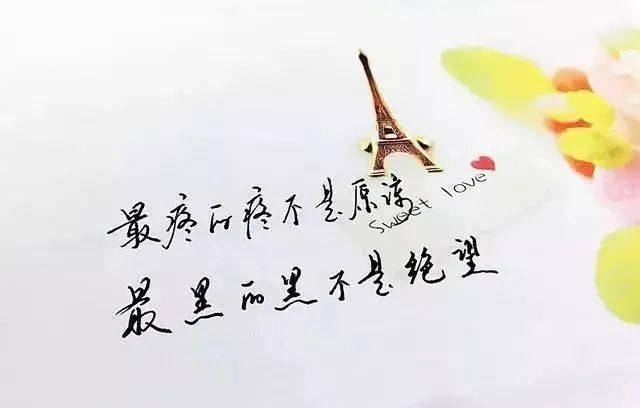 最疼的疼不是原谅
Sweet love
最黑的黑不是绝望